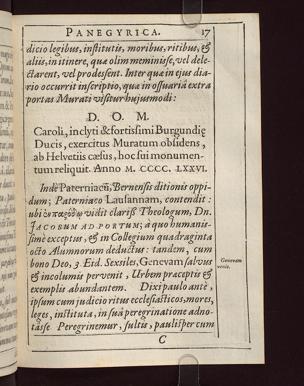 PANEGYRICA. 17
dicio legibus, institutis, moribus, ritibus, &
aliis, in itinere, quæ olim meminisse, vel dele-
ctarent, vel prodessent. Inter quæ in ejus dia-
rio occurrit inscriptio, quæ in ossuaria extra
portas Murati visitur hujusmodi:
D. O. M.
Caroli, inclyti & fortissimi Burgundię
Ducis, exercitus Muratum obsidens,
ab Helvetiis cæsus, hoc sui monumen-
tum reliquit. Anno M. CCCC. LXXVI.
Inde Paterniacũ, Bernensis ditionis oppi-
dum; Paterniaco Lausannam, contendit:
ubi vidit clariss. Theologum, Dn.
JACOBUM AD PORTUM; à quo humanis-
simè exceptus, & in Collegium quadraginta
octo Alumnorum deductus: tandem, cum
bono Deo, 3. Eid. Sexiles, Genevam salvus
& incolumis pervenit, Urbem præceptis &
exemplis abundantem. Dixi paulo antè,
ipsum cum judicio ritus ecclesiasticos, mores,
leges, instituta, in suâ peregrinatione adno-
tâsse Peregrinemur, sultis, paulisper cum
C
Genevam
venit.